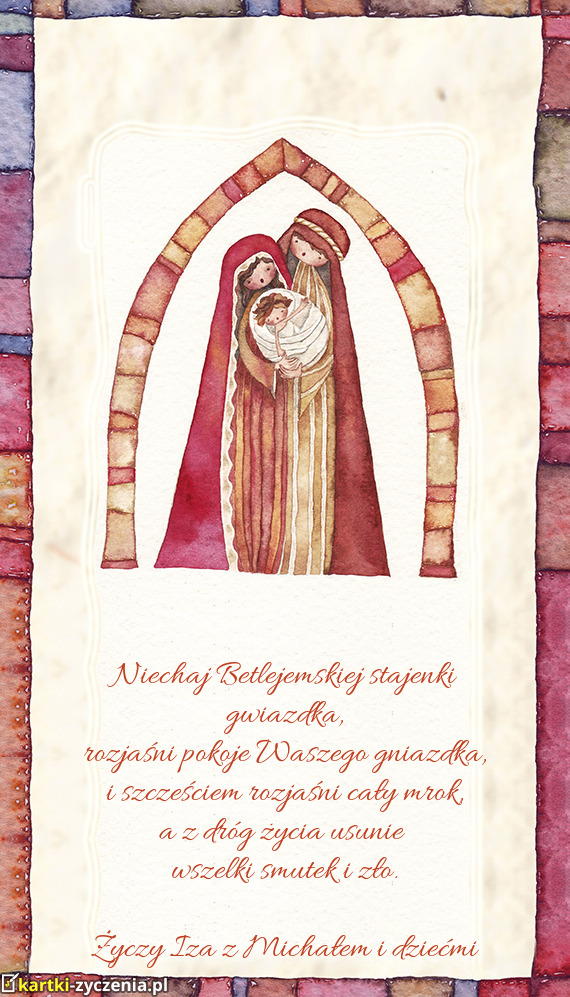 Niechaj Betlejemskiej stajenki
gwiazdka,
rozjaśni pokoje Waszego gniazdka,
i szczęściem rozjaśni cały mrok,
a z dróg życia usunie
wszelki smutek i zło.
Życzy Iza z Michałem i dziećmi
kartki-zyczenia.pl